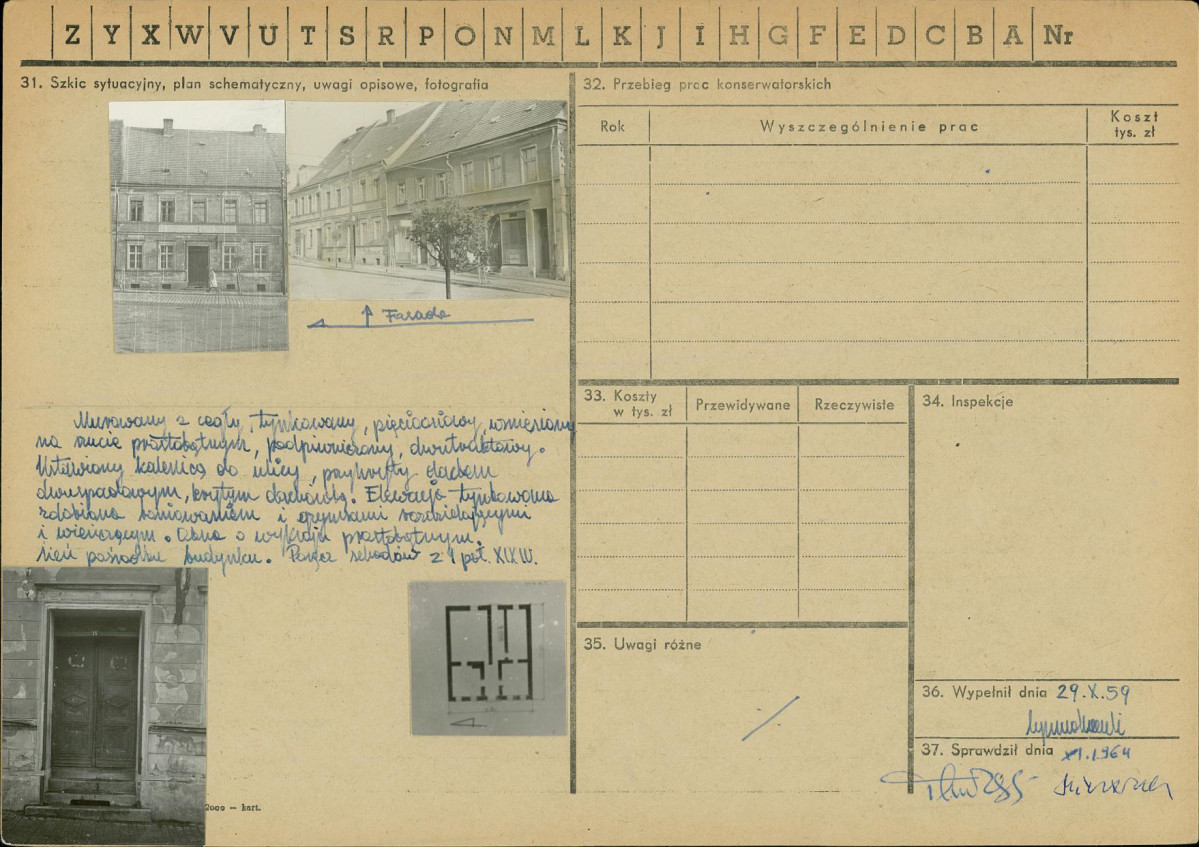 Z Y X W V U T S R P O N M L K J I H G F E D C B A Nr
31. Szkic sytuacyjny, plan schematyczny, uwagi opisowe, fotografia
Fasada
Murowany z cegły, tynkowany, pięcioosiowy, wzniesiony
na rzucie prostokątnym, podpiwniczony, dwutraktowy.
Ustawiony kalenicą do ulicy, przykryty dachem
dwuspadowym, krytym dachówką. Elewacja tynkowana
zdobiona boniowaniem i gzymsami rozdzielającymi
i wieńczącym. Okna o wykroju prostokątnym.
Sień pośrodku budynku. Poręcz schodów z 1 poł. XIX W.
2000 – kart.
32. Przebieg prac konserwatorskich
Rok
Wyszczególnienie prac
Koszt
tys. zł
33. Koszty
w tys. zł
Przewidywane
Rzeczywiste
34. Inspekcje
35. Uwagi różne
36. Wypełnił dnia 29.X.59
37. Sprawdził dnia XI.1964